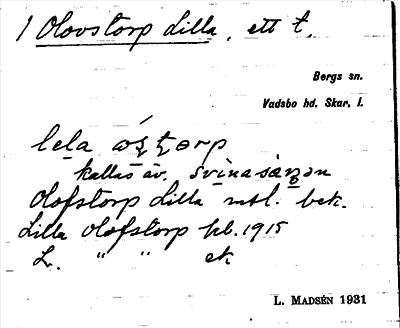 1 Olovstorp Lilla, ett t.
Bergs sn.
Vadsbo hd. Skar. l.
lela
kallas av.
Olofstorp Lilla mtl. bek.
Lilla Olofstorp kb. 1915
L. " " ek
L. MADSÉN 1931